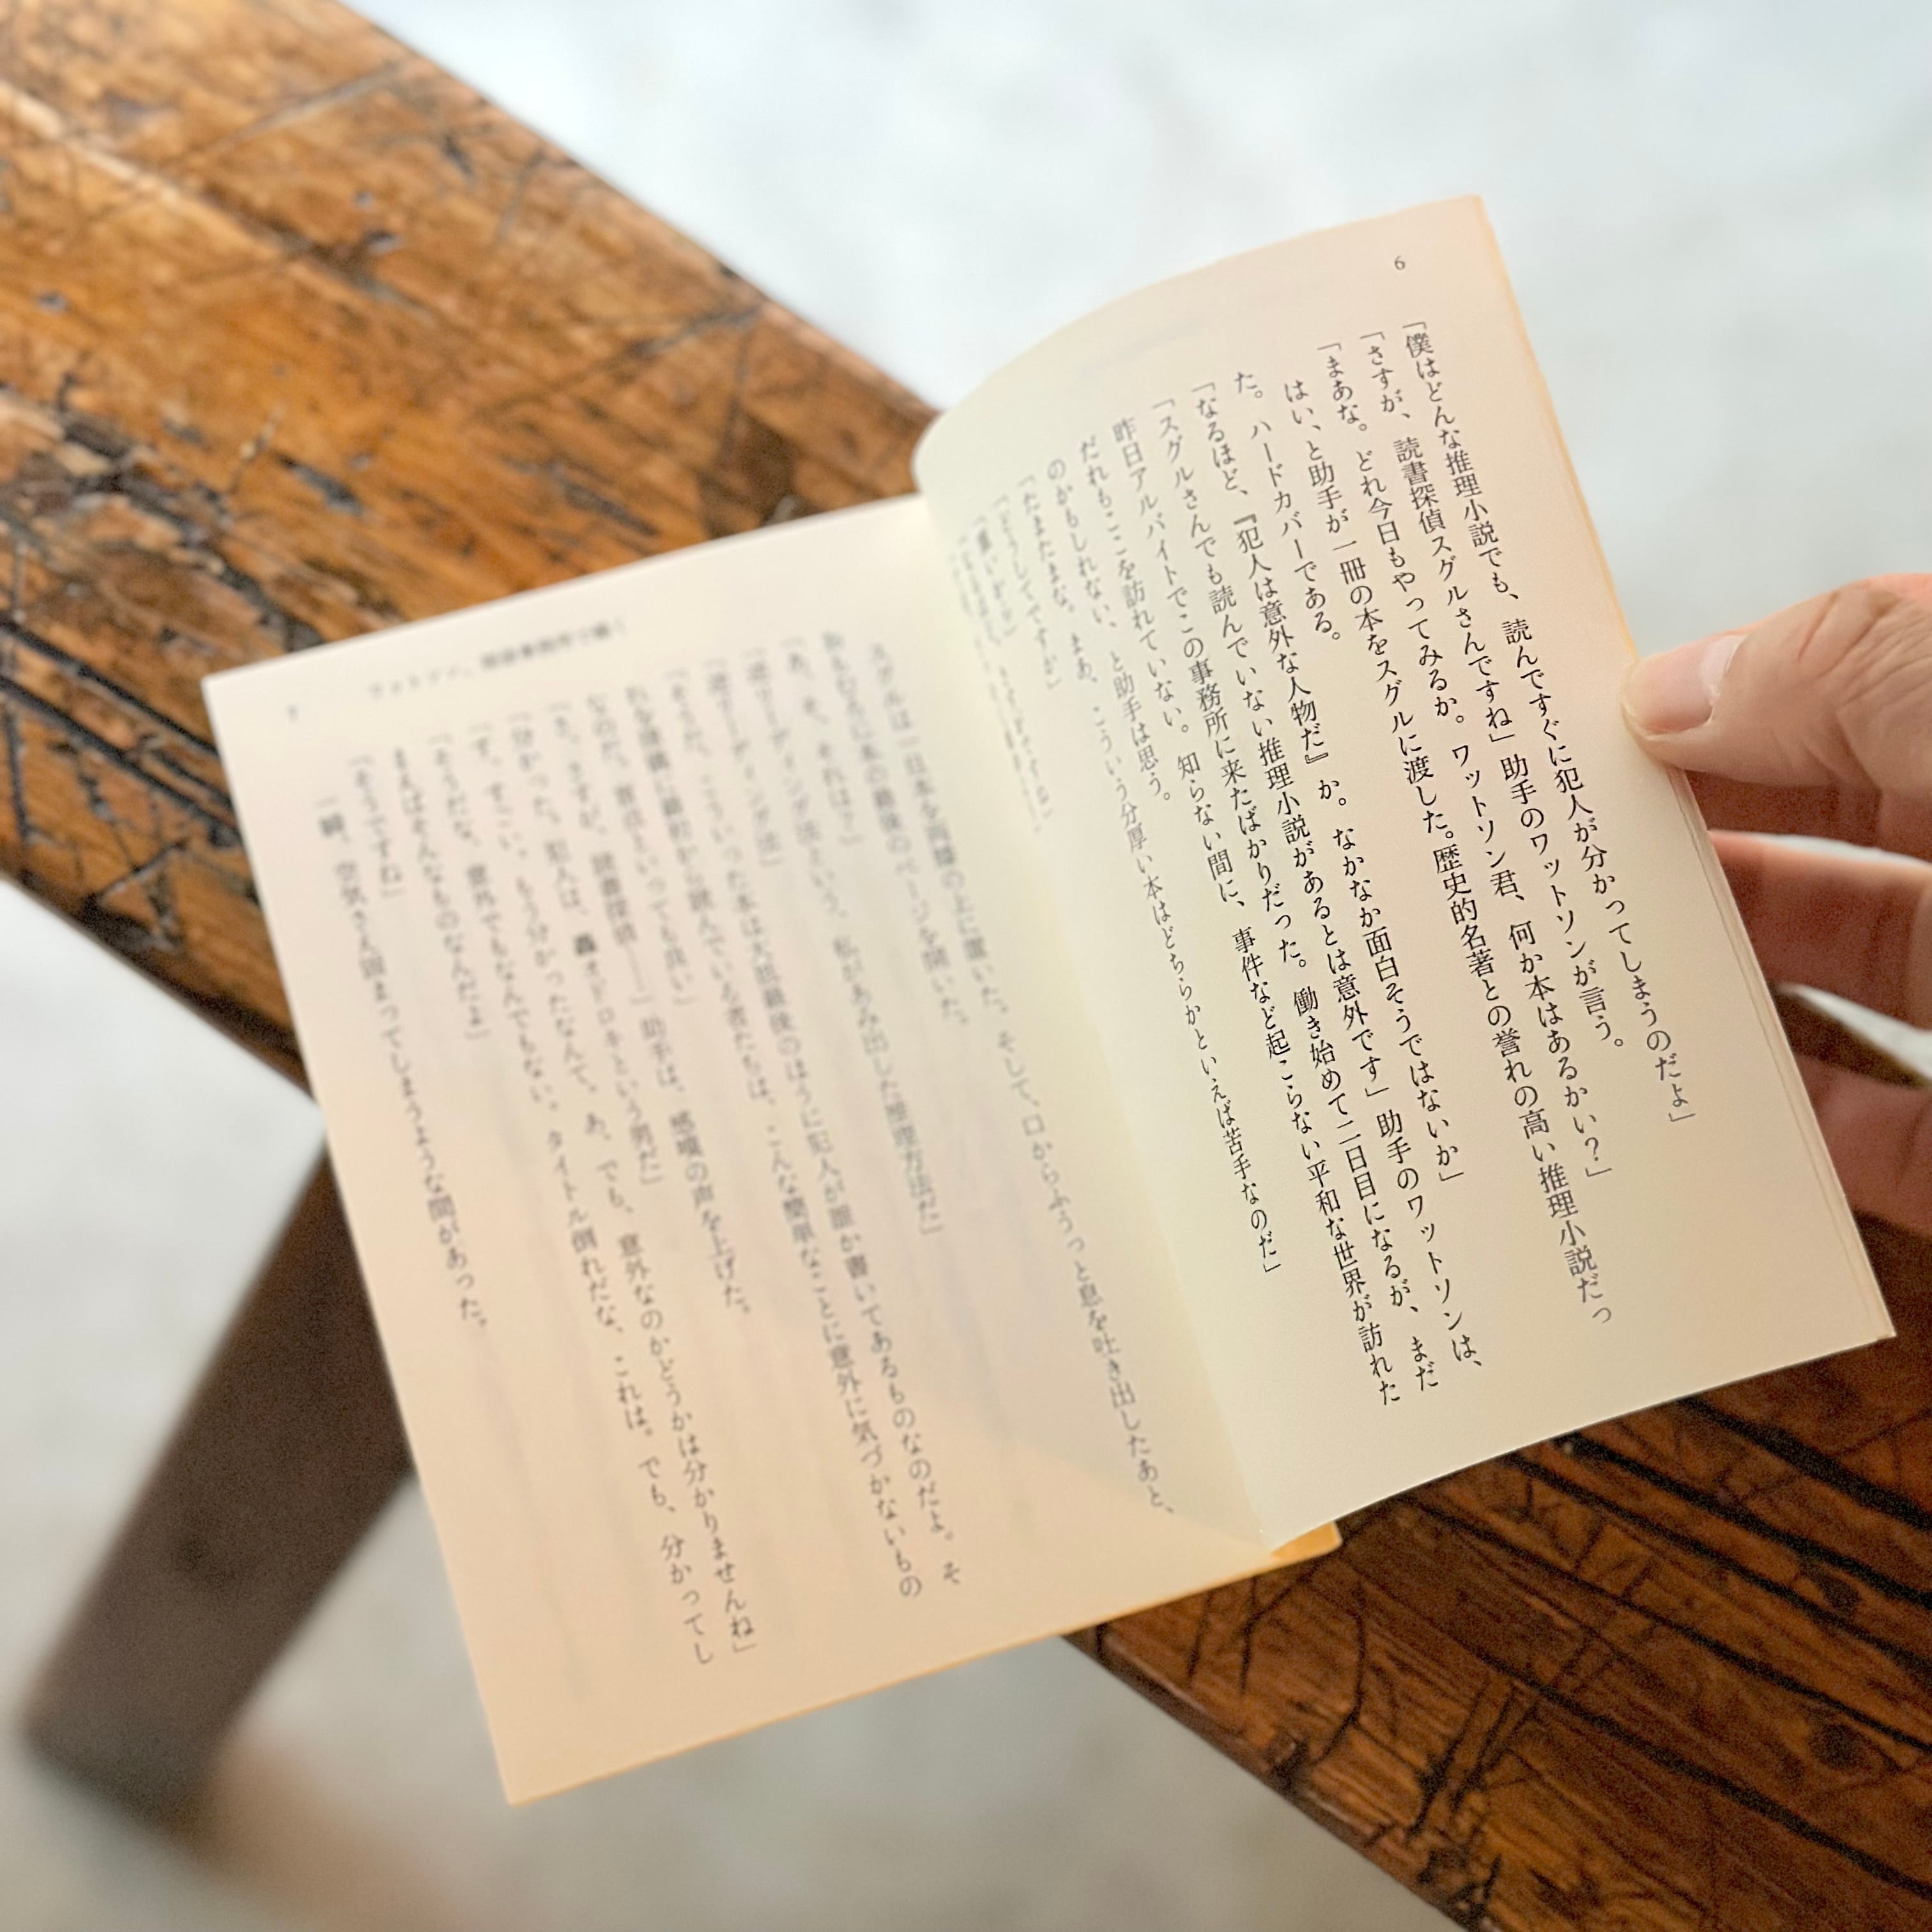 6
「僕はどんな推理小説でも、読んですぐに犯人が分かってしまうのだよ」
「さすが、読書探偵スグルさんですね」助手のワットソンが言う。
「まあな。どれ今日もやってみるか。ワットソン君、何か本はあるかい？」
はい、と助手が一冊の本をスグルに渡した。歴史的名著との誉れの高い推理小説だっ
た。ハードカバーである。
「なるほど、『犯人は意外な人物だ』か。なかなか面白そうではないか」
「スグルさんでも読んでいない推理小説があるとは意外です」助手のワットソンは、
昨日アルバイトでこの事務所に来たばかりだった。働き始めて二日目になるが、まだ
だれもここを訪れていない。知らない間に、事件など起こらない平和な世界が訪れた
のかもしれない、と助手は思う。
「たまたまな。まあ、こういう分厚い本はどちらかといえば苦手なのだ」
「どうしてですか」
「重いから」
7
スグルは一旦本を両膝の上に置いた。そして、口からふうっと息を吐き出したあと、
おもむろに本の最後のページを開いた。
「あ、そ、それは？」
「逆リーディング法という。私があみ出した推理方法だ」
「逆リーディング法」
「そうだ。こういった本は大抵最後のほうに犯人が誰か書いてあるものなのだよ。そ
れを律儀に最初から読んでいる者たちは、こんな簡単なことに意外に気づかないもの
なのだ。盲点といっても良い」
「さ、さすが、読書探偵――」助手は、感嘆の声を上げた。
「分かった。犯人は、轟オドロキという男だ」
「す、すごい。もう分かったなんて。あ、でも、意外なのかどうかは分かりませんね」
「そうだな。意外でもなんでもない。タイトル倒れだな、これは。でも、分かってし
まえばそんなものなんだよ」
「そうですね」
一瞬、空気さえ固まってしまうような間があった。